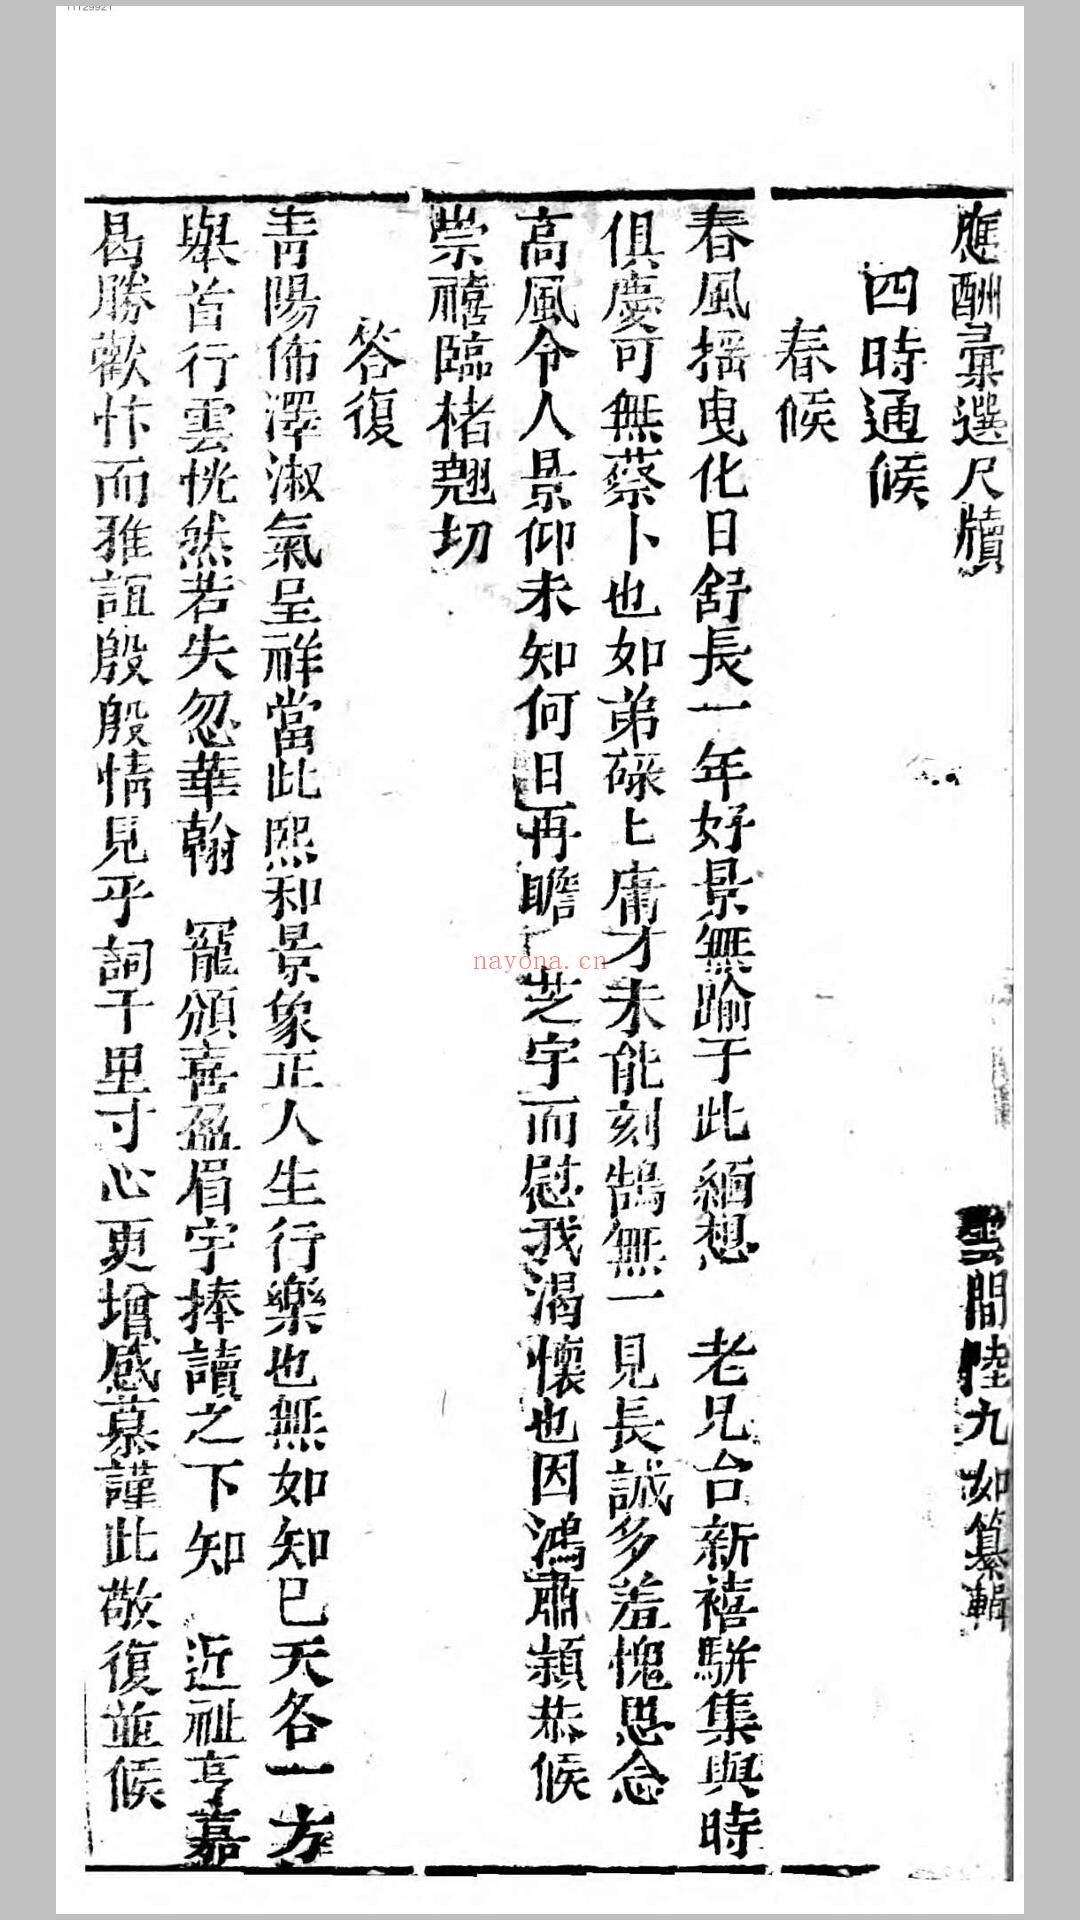 11129921
應酬彙選尺牘 雲間陸九如纂輯
四時通候
春候
春風揺曳化日舒長一年好景無踰于此緬想 老兄台新禧駢集與時
俱慶可無蔡卜也如弟碌上庸才未能刻鵠無一見長誠多羞愧思念
高風令人景仰未知何日再瞻 芝宇而慰我渴懷也因鴻肅頴恭候
崇禧臨楮翹切
答復
青陽佈澤淑氣呈祥當此熙和景象正人生行樂也無如知巳天各一方
舉首行雲恍然若失忽華翰 寵頒喜盈眉宇捧讀之下知 近祉亨嘉
曷勝歡忭而雅誼殷殷情見乎詞千里寸心更增感慕謹此敬復並候
nayona.cn